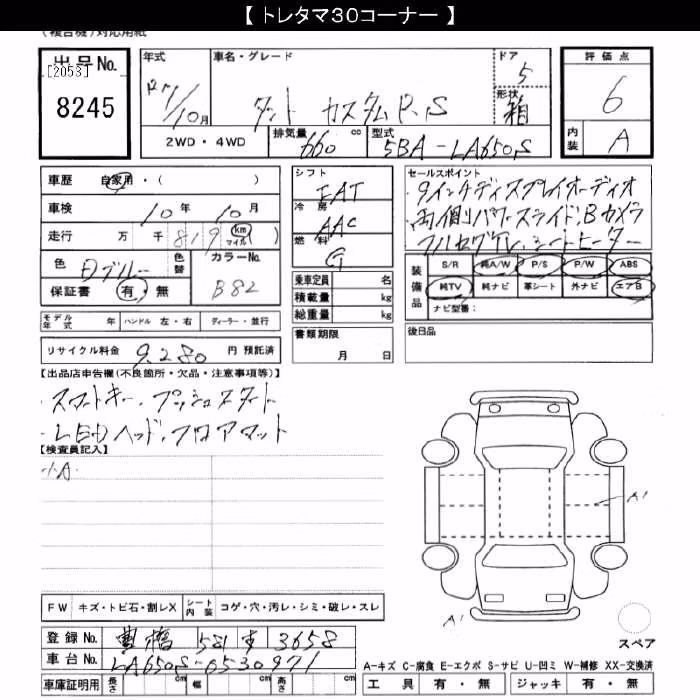 【 トレタマ30コーナー 】
(複合機)対応用紙
出品No.
[2053]
8245
年式 車名・グレード ドア
R7/10月 タント カスタムRS 5
形状
箱
2WD・4WD 排気量 660 cc 型式 5BA-LA650S
評価点
6
内装 A
車歴 自家用・( )
車検 10年 10月
走行 万 千 819 km マイル )
色 Dブルー 色替 カラーNo.
保証書 有・無 B82
モデル年式 年 ハンドル 左・右 ディーラー・並行
リサイクル料金 9,280 円 預託済
シフト
FAT
冷房
AAC
燃料
G
乗車定員 名
積載量 kg
総重量 kg
書類期限
月 日
セールスポイント
・9インチディスプレイオーディオ
・両側パワースライド、Bカメラ
・フルセグTV、シートヒーター
装備品 S/R 純A/W P/S P/W ABS
純TV 純ナビ 革シート 外ナビ エアB
ナビ型番:
後日品
【出品店申告欄(不良箇所・欠品・注意事項等)】
・スマートキー、プッシュスタート
・LEDヘッド、フロアマット
【検査員記入】
A1
A1
FW キズ・トビ石・割レX シート内装 コゲ・穴・汚レ・シミ・破レ・スレ
登録No. 豊橋 581 す 3658
車台No. LA650S-0530971
車庫証明用 長さ cm 幅 cm 高さ cm
スペア
A-キズ C-腐食 E-エクボ S-サビ U-凹ミ W-補修 XX-交換済
工具 有・無 ジャッキ 有・無